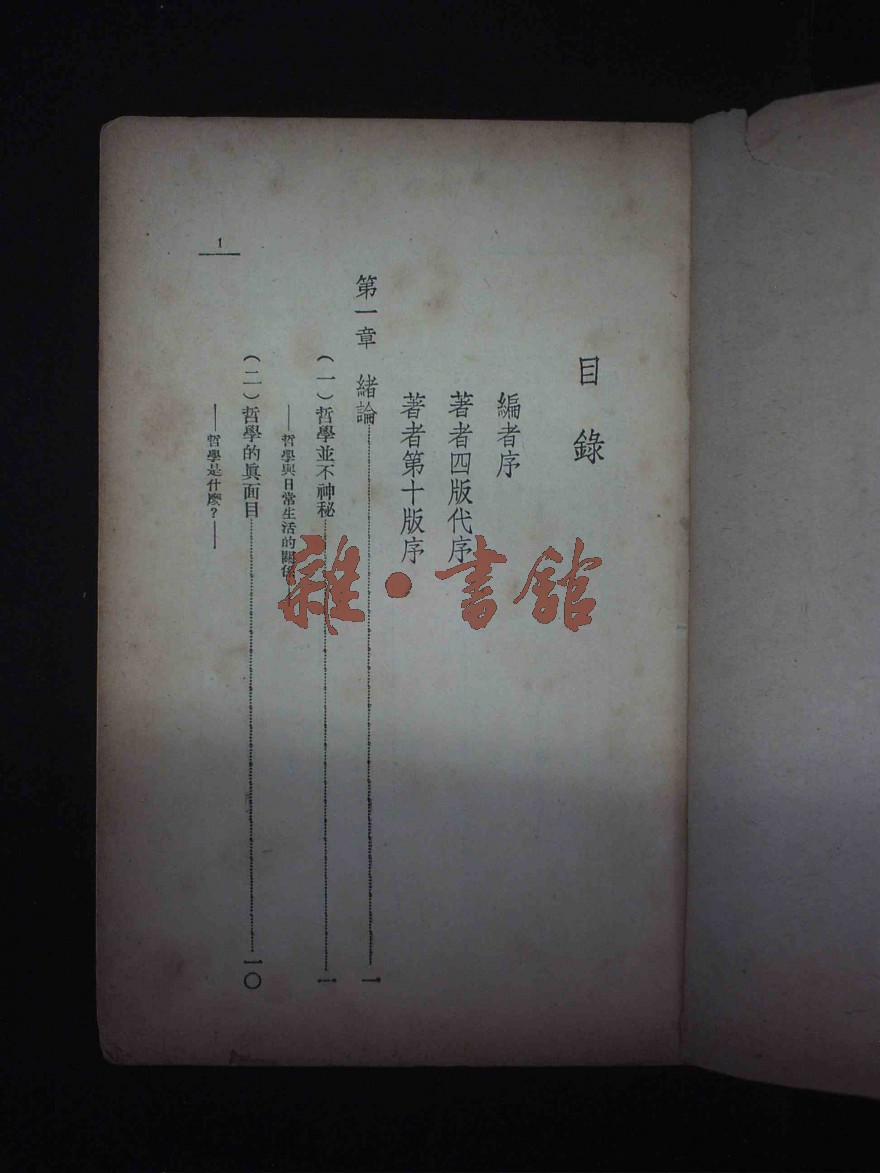 目錄
編者序
著者四版代序
著者第十版序
第一章 緒論…………一
(一)哲學並不神秘…………一
——哲學與日常生活的關係
(二)哲學的眞面目…………一〇
——哲學是什麼?——
1
雜·書館